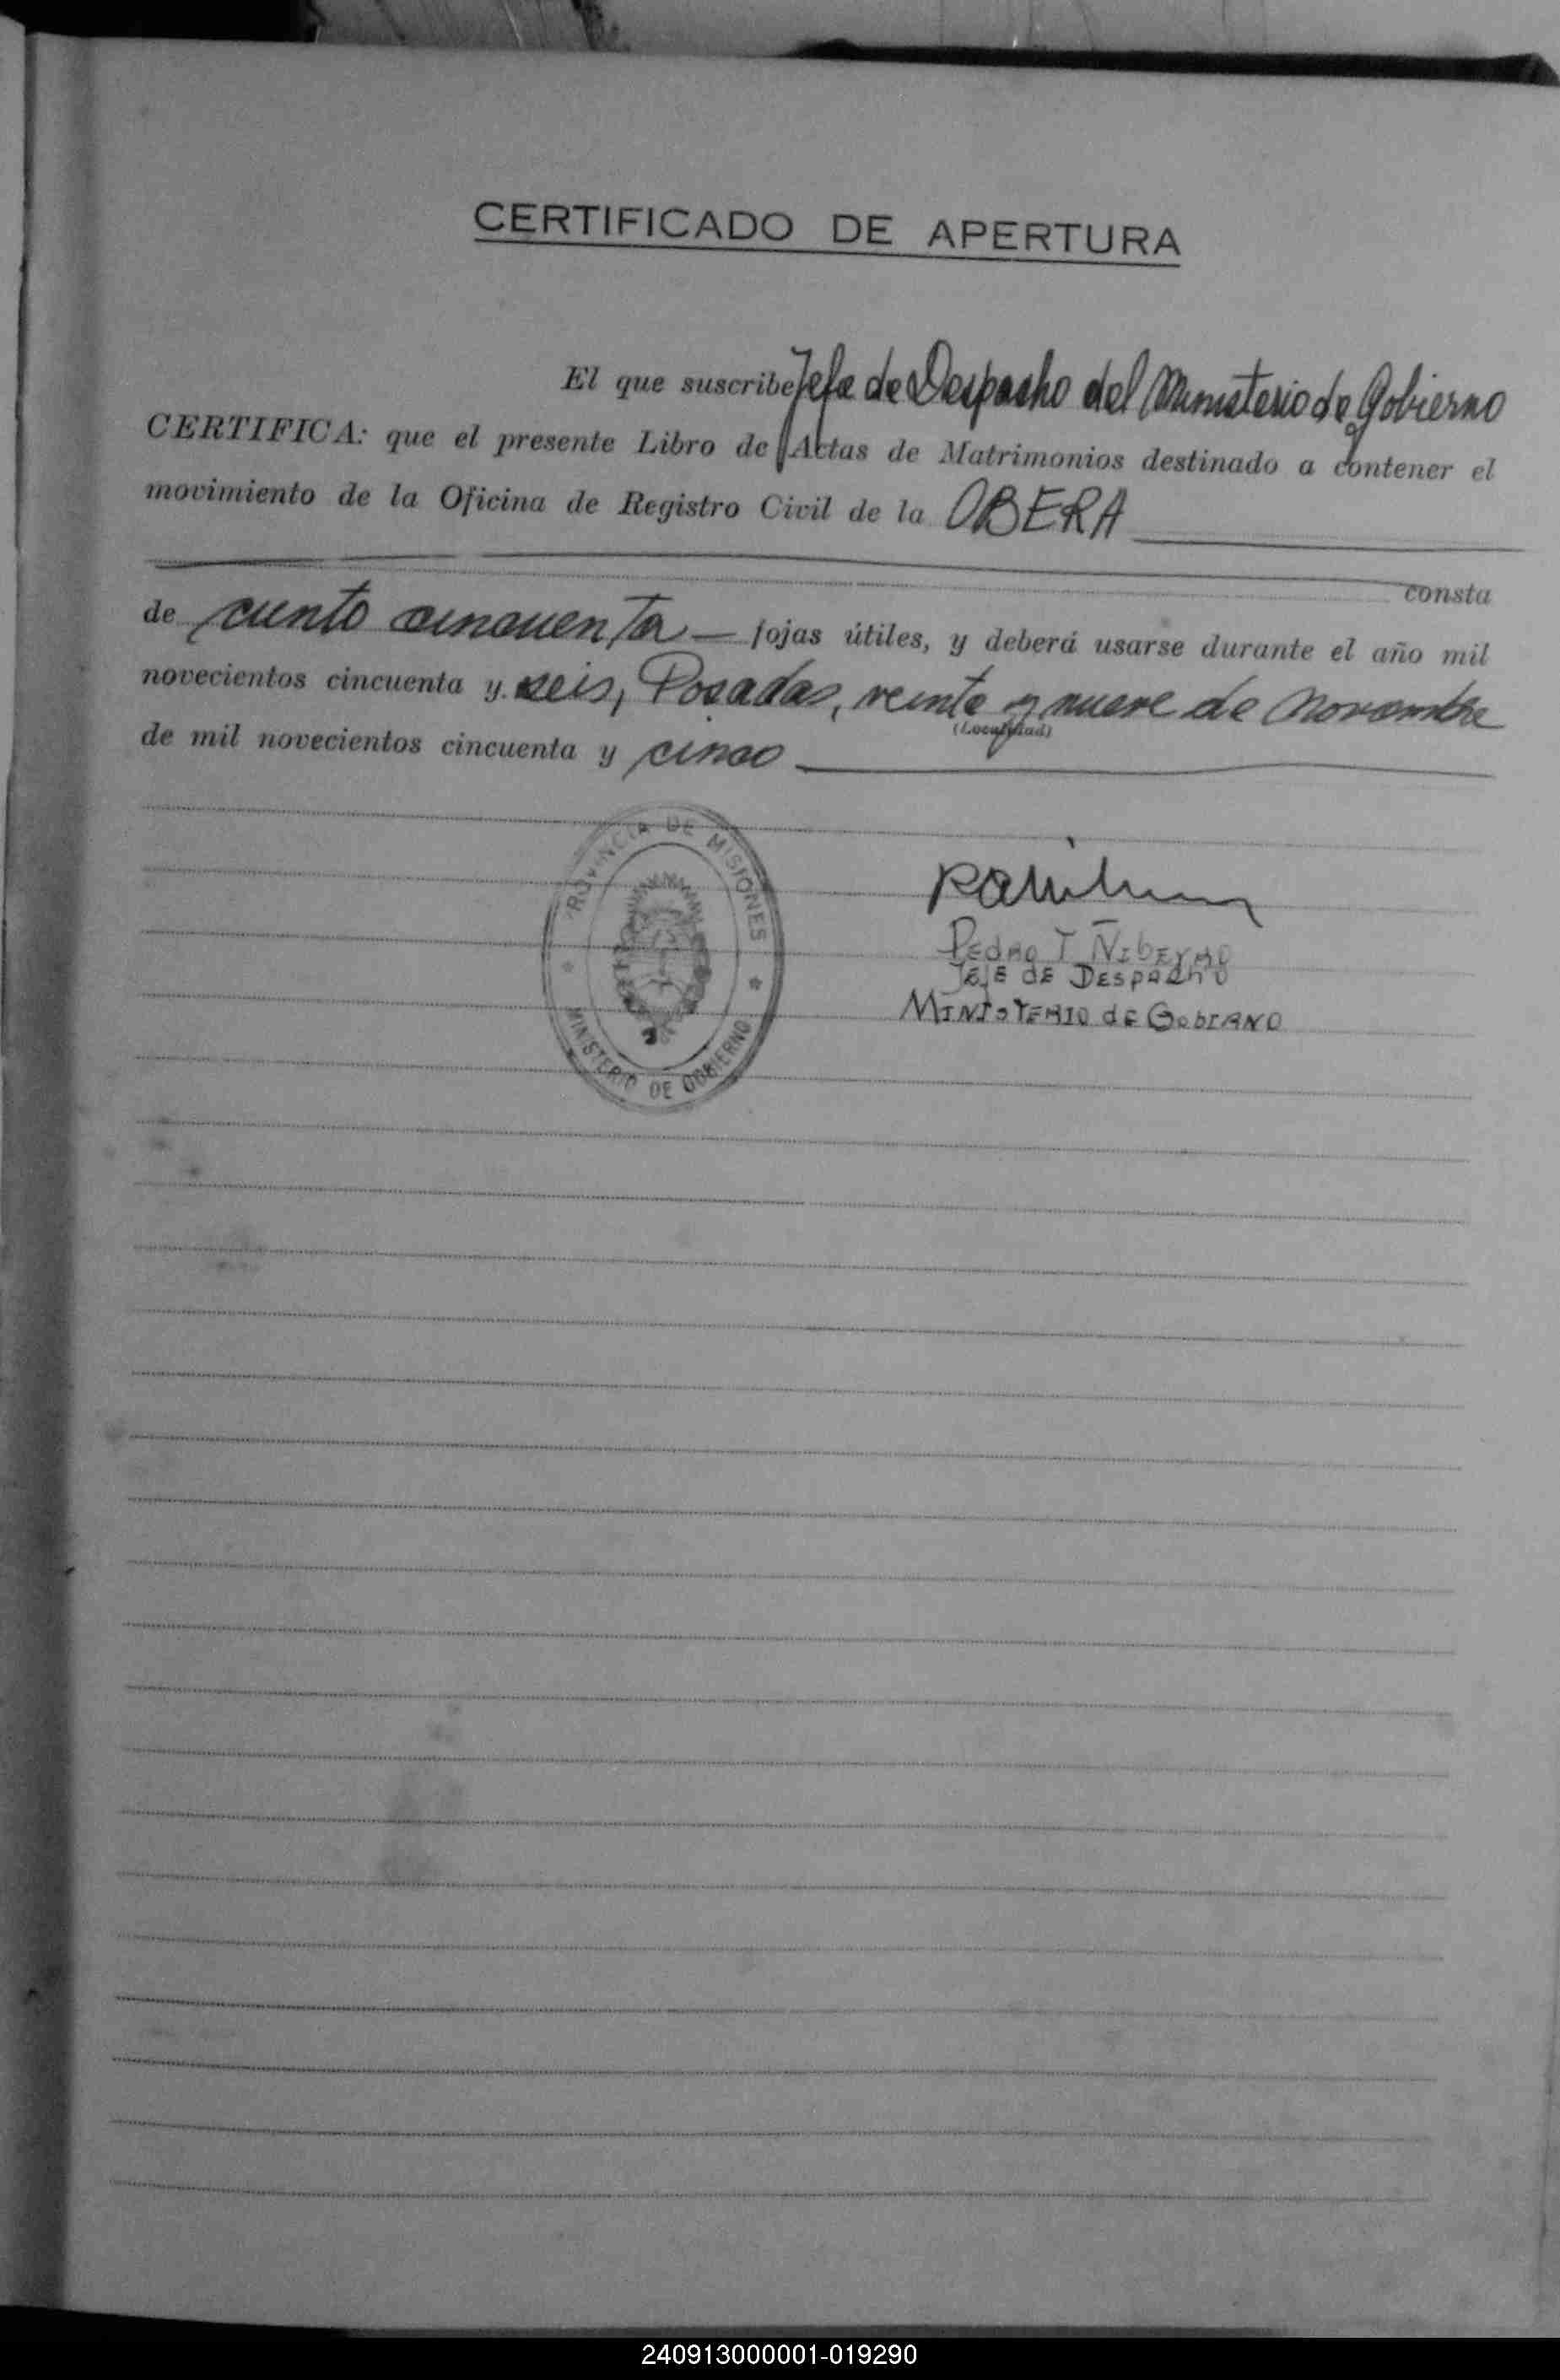 CERTIFICADO DE APERTURA
El que suscribe Jefe de Despacho del Ministerio de Gobierno
CERTIFICA: que el presente Libro de Actas de Matrimonios destinado a contener el
movimiento de la Oficina de Registro Civil de la OBERA
consta
de ciento cincuenta — fojas útiles, y deberá usarse durante el año mil
novecientos cincuenta y seis, Posadas, veinte y nueve de Noviembre
(Localidad)
de mil novecientos cincuenta y cinco
PROVINCIA DE MISIONES
MINISTERIO DE GOBIERNO
PEDRO I
JEFE DE DESPACHO
MINISTERIO de GobIRNO
240913000001-019290